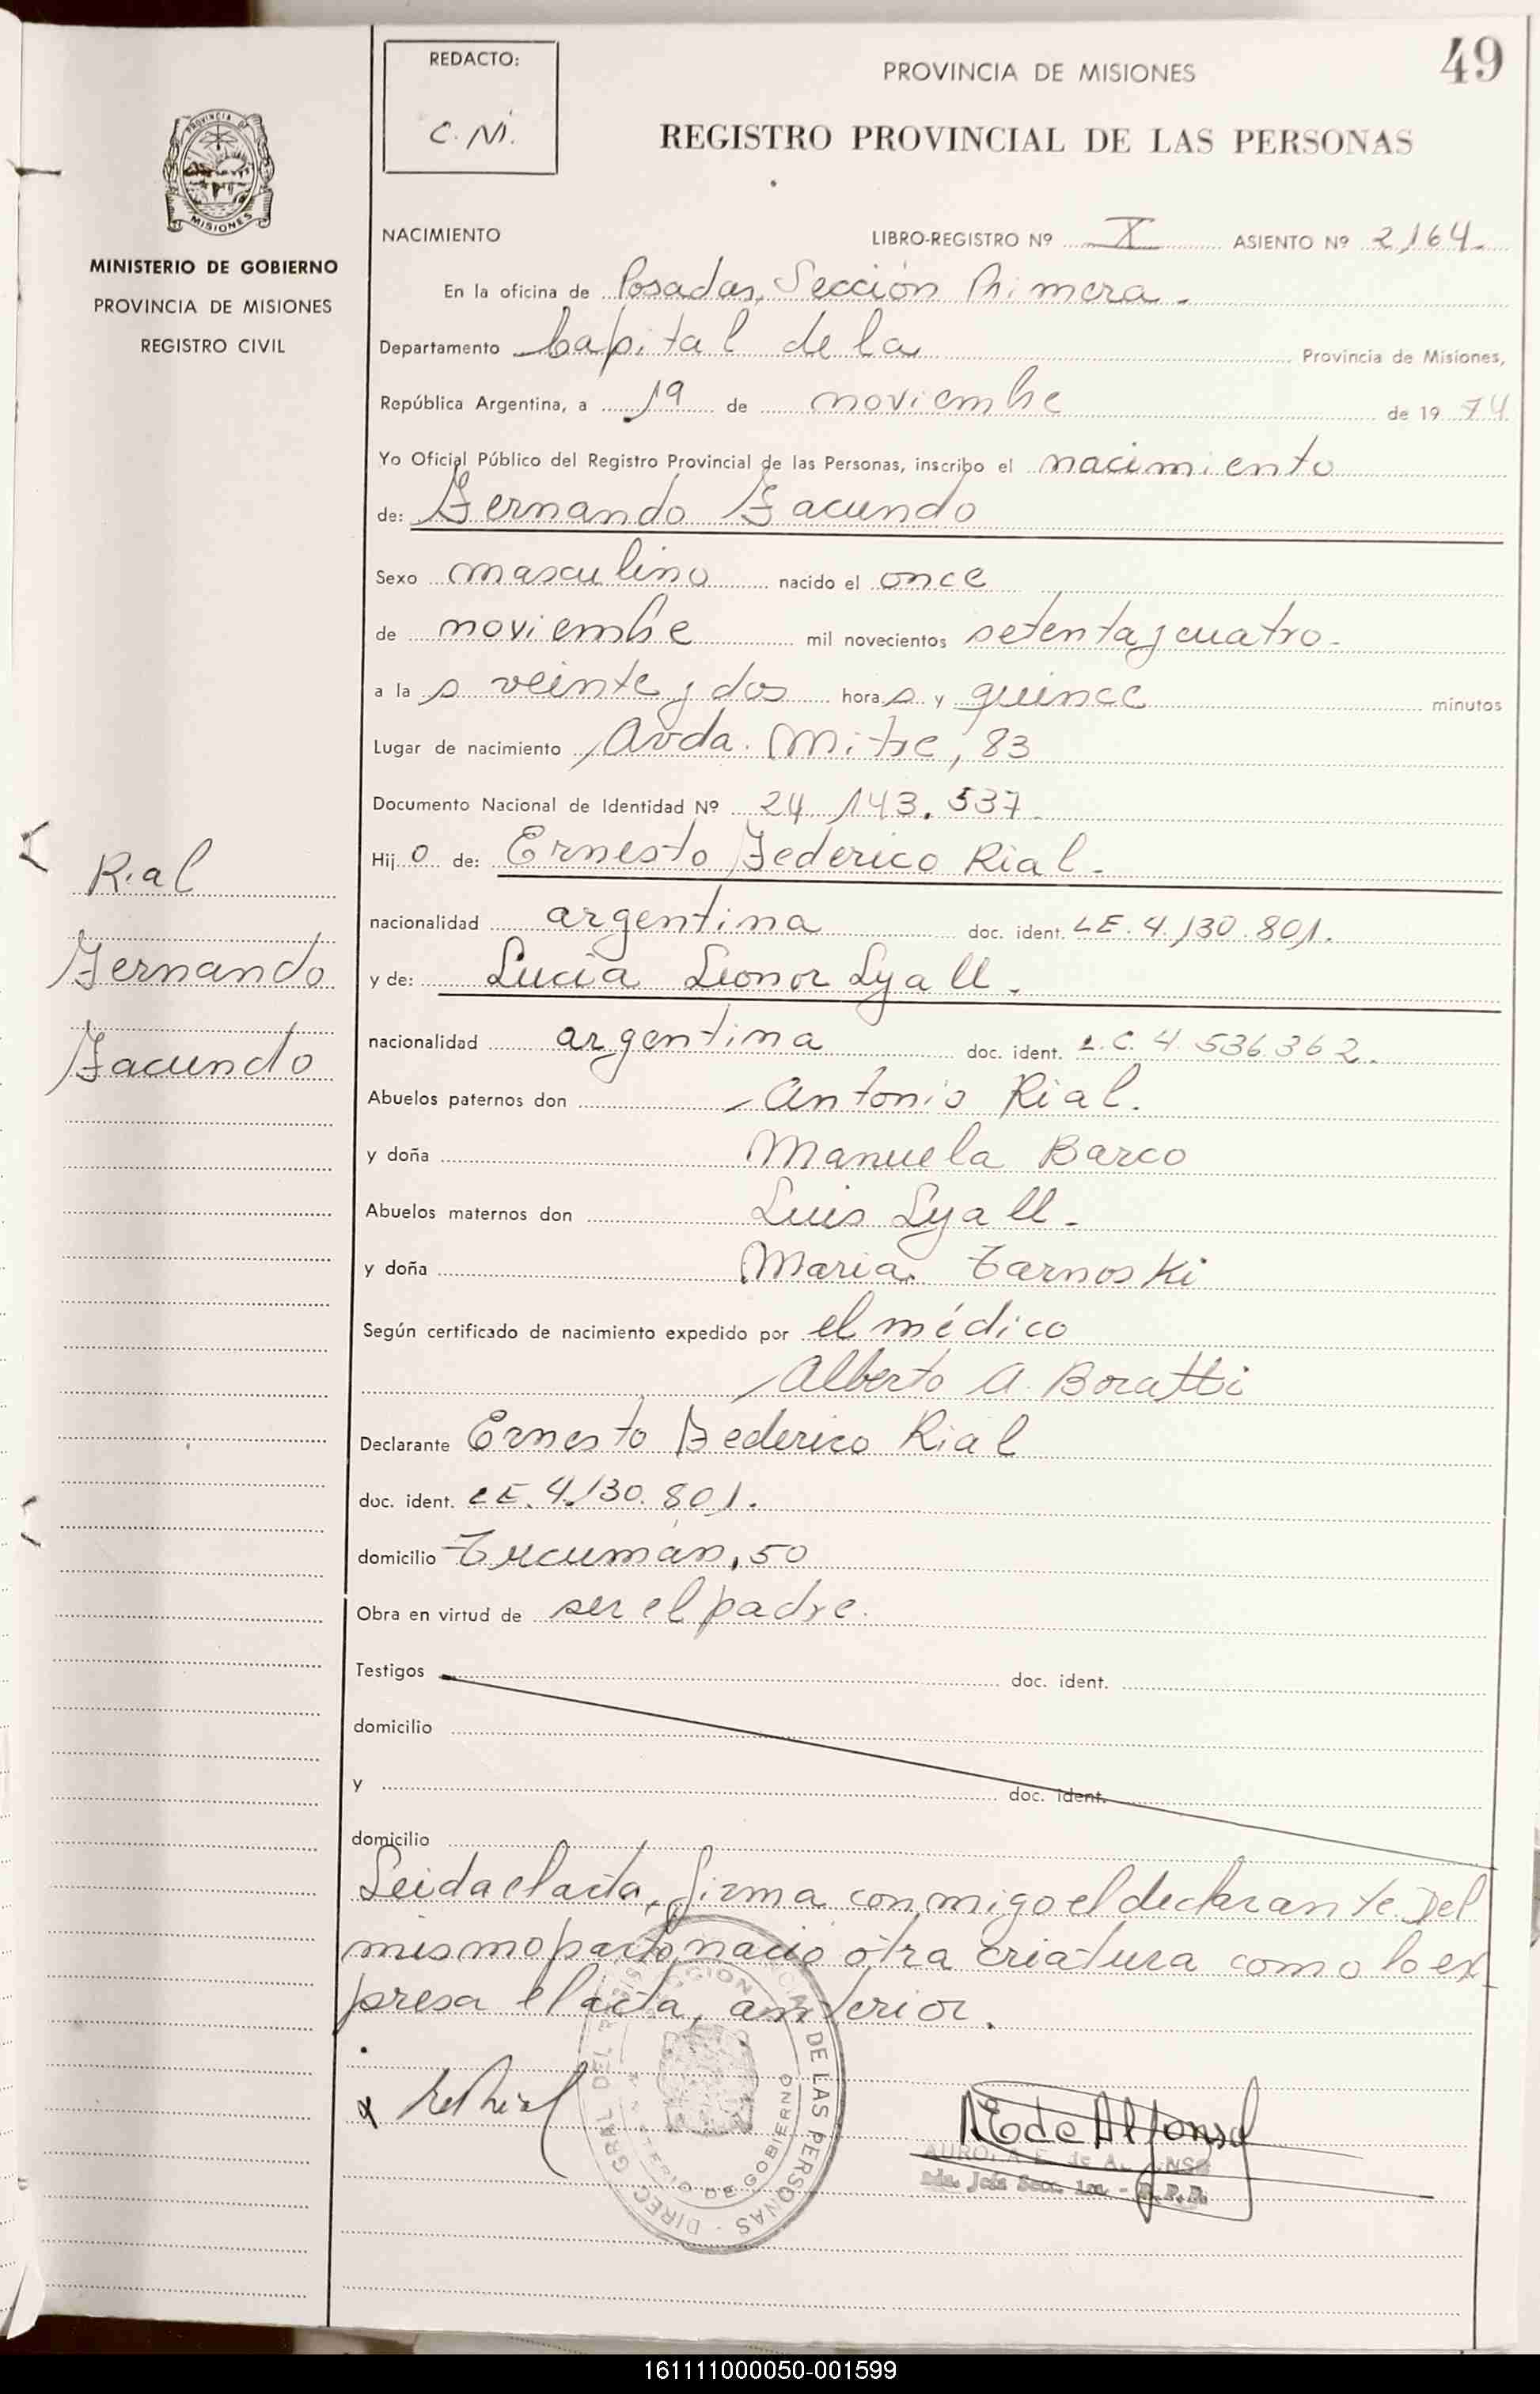 49
REDACTO:
C. M.
PROVINCIA DE MISIONES
REGISTRO PROVINCIAL DE LAS PERSONAS
PROVINCIA DE
MISIONES
MINISTERIO DE GOBIERNO
PROVINCIA DE MISIONES
REGISTRO CIVIL
NACIMIENTO LIBRO-REGISTRO Nº X ASIENTO Nº 2,164.
En la oficina de Posadas, Sección Primera.
Departamento Capital de la Provincia de Misiones,
República Argentina, a 19 de noviembre de 19 74
Yo Oficial Público del Registro Provincial de las Personas, inscribo el nacimiento
de: Fernando Facundo
Sexo masculino nacido el once
de noviembre mil novecientos setenta y cuatro.
a la s veinte y dos hora s y quince minutos
Lugar de nacimiento Avda. Mitre, 83
Documento Nacional de Identidad Nº 24.143.537
Hij o de: Ernesto Federico Rial.
nacionalidad argentina doc. ident. LE. 4.130.801.
y de: Lucia Leonor Lyall.
nacionalidad argentina doc. ident. L.C. 4.536.362.
Abuelos paternos don Antonio Rial.
y doña Manuela Barco
Abuelos maternos don Luis Lyall.
y doña Maria Tarnoski
Según certificado de nacimiento expedido por el médico
Alberto A. Boratti
Declarante Ernesto Federico Rial
doc. ident. LE. 4.130.801.
domicilio Tucumán, 50
Obra en virtud de ser el padre.
Testigos doc. ident.
domicilio
y doc. ident.
domicilio
Leida el acta, firma conmigo el declarante. Del
mismo parto nació otra criatura como lo ex-
presa el acta, anterior.
Rial
Fernando
Facundo
DIREC. GRAL. DEL DE LAS PERSONAS
MINISTERIO DE GOBIERNO
E de Alfonso
161111000050-001599